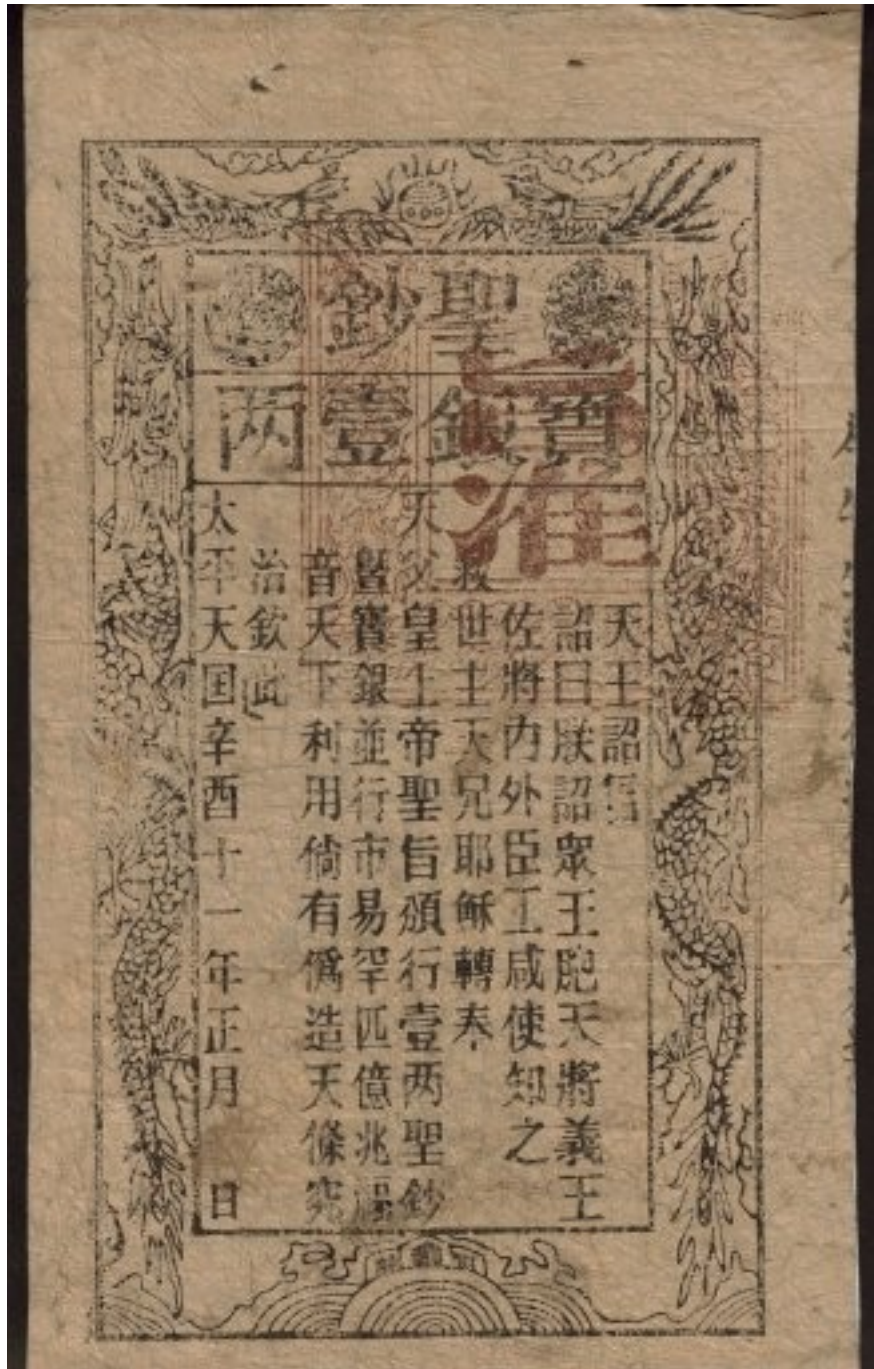 聖鈔
寶銀壹两
旨准
天王詔旨
詔曰朕詔眾王胞天將義王
佐將內外臣工咸使知之
救世主天兄耶穌轉奉
天父皇上帝聖旨頒行壹两聖鈔
暨寶銀並行市易罕匹億兆福
音天下利用倘有僞造天條究
治欽此
太平天囯辛酉十一年正月 日